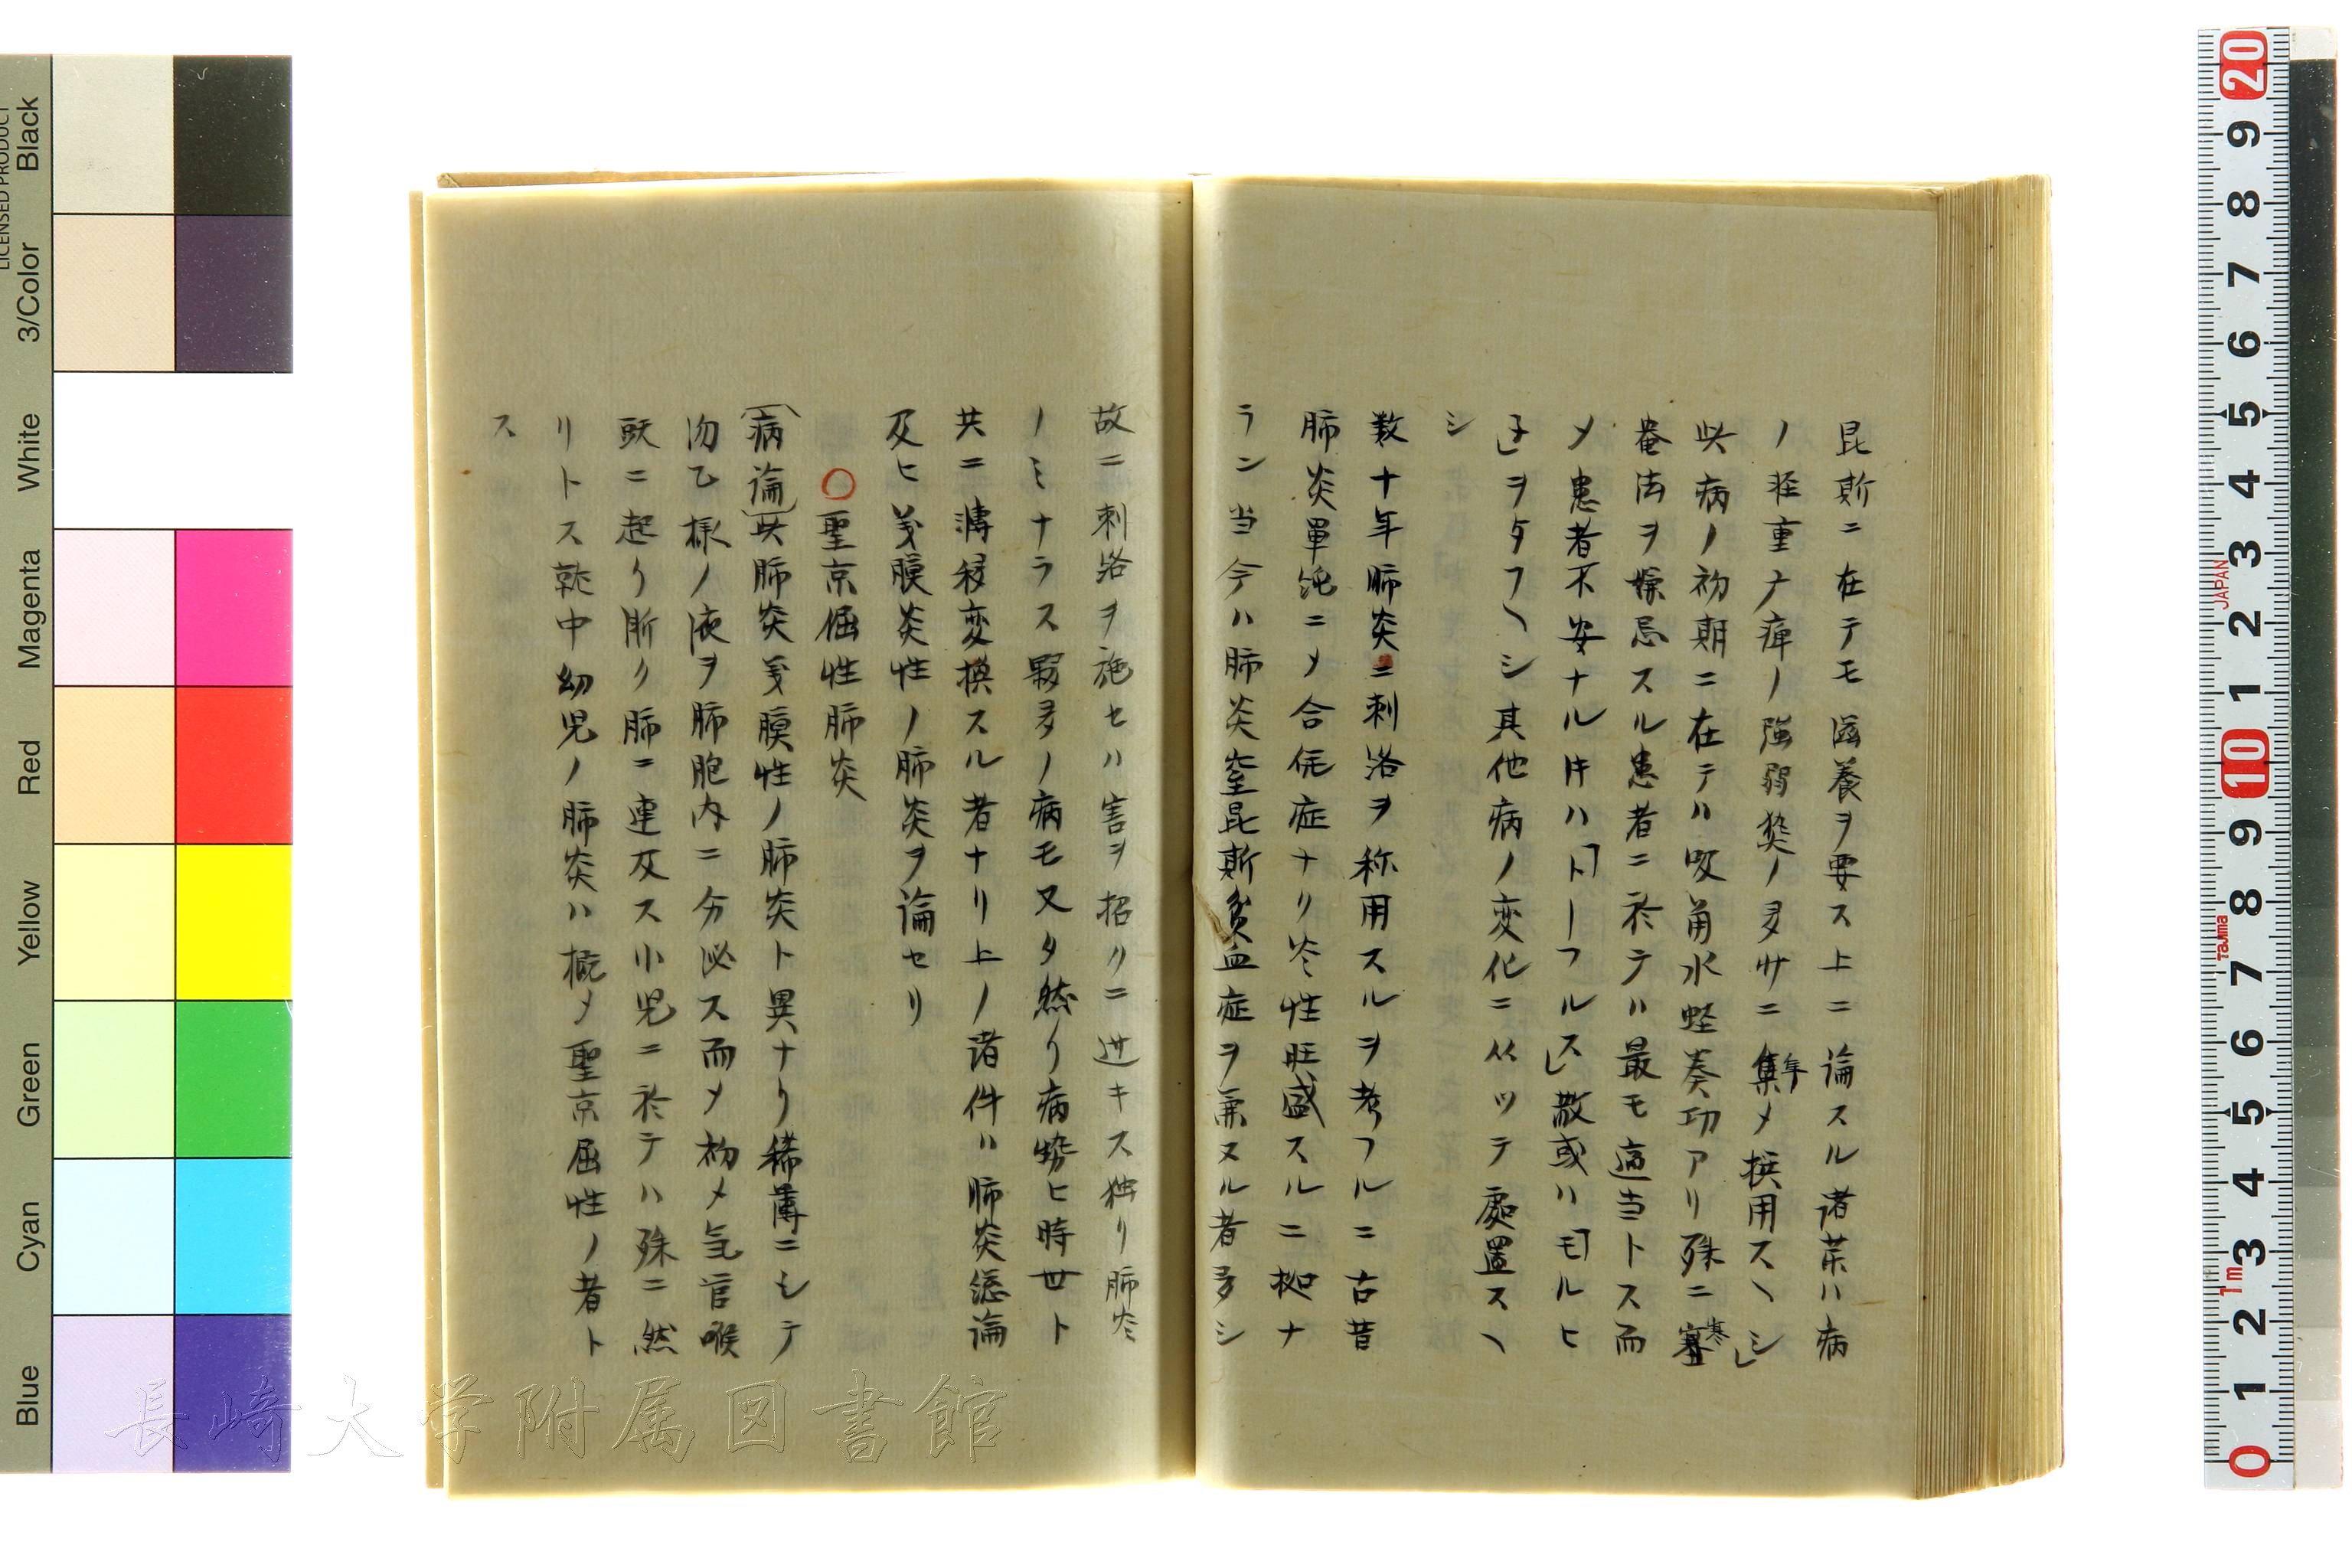 昆斯ニ在テモ滋養ヲ要ス上ニ論スル諸菜ハ病
ノ軽重ナ痺ノ強弱ノ多サニ集メ撰用スヘシ
此病ノ初期ニ在テハ吸角水蛭奏功アリ殊ニ
罨法ヲ嫌忌スル患者ニ於テハ最モ適当トス而
メ患者不安ナル片ハ「トーフルス」散或ハ「モルヒ
子」ヲ与フヘシ其他病ノ変化ニ从ツテ處置スヘ
シ
数十年肺炎ニ刺洛ヲ称用スルヲ考フルニ古昔
肺炎單純ニメ合併症ナリ炎性旺盛スルニ拠ナ
ラン当今ハ肺炎窒昆斯貧血症ヲ兼ヌル者多シ
故ニ刺絡ヲ施セハ害ヲ招クニ過キス独リ肺炎
ノミナラス夥多ノ病モ又タ然リ病勢ヒ時世ト
共ニ轉移変換スル者ナリ上ノ諸件ハ肺炎総論
及ヒ義膜炎性ノ肺炎ヲ論セリ
○聖京倔性肺炎
(病論)此肺炎義膜性ノ肺炎ト異ナリ稀薄ニシテ
沕乙様ノ液ヲ肺胞内ニ分泌ス而メ初メ気管喉
頭ニ起リ漸ク肺ニ連及ス小児ニ於テハ殊ニ然
リトス就中幼児ノ肺炎ハ概メ聖京屈性ノ者ト
ス
Blue
Cyan
Green
Yellow
Red
Magenta
White
3/Color
Black
LICENSED PRODUCT
長崎大学附属図書館
20
9
8
7
6
5
4
3
2
1
10
9
8
7
6
5
4
3
2
1
0
JAPAN
Tajima
1m